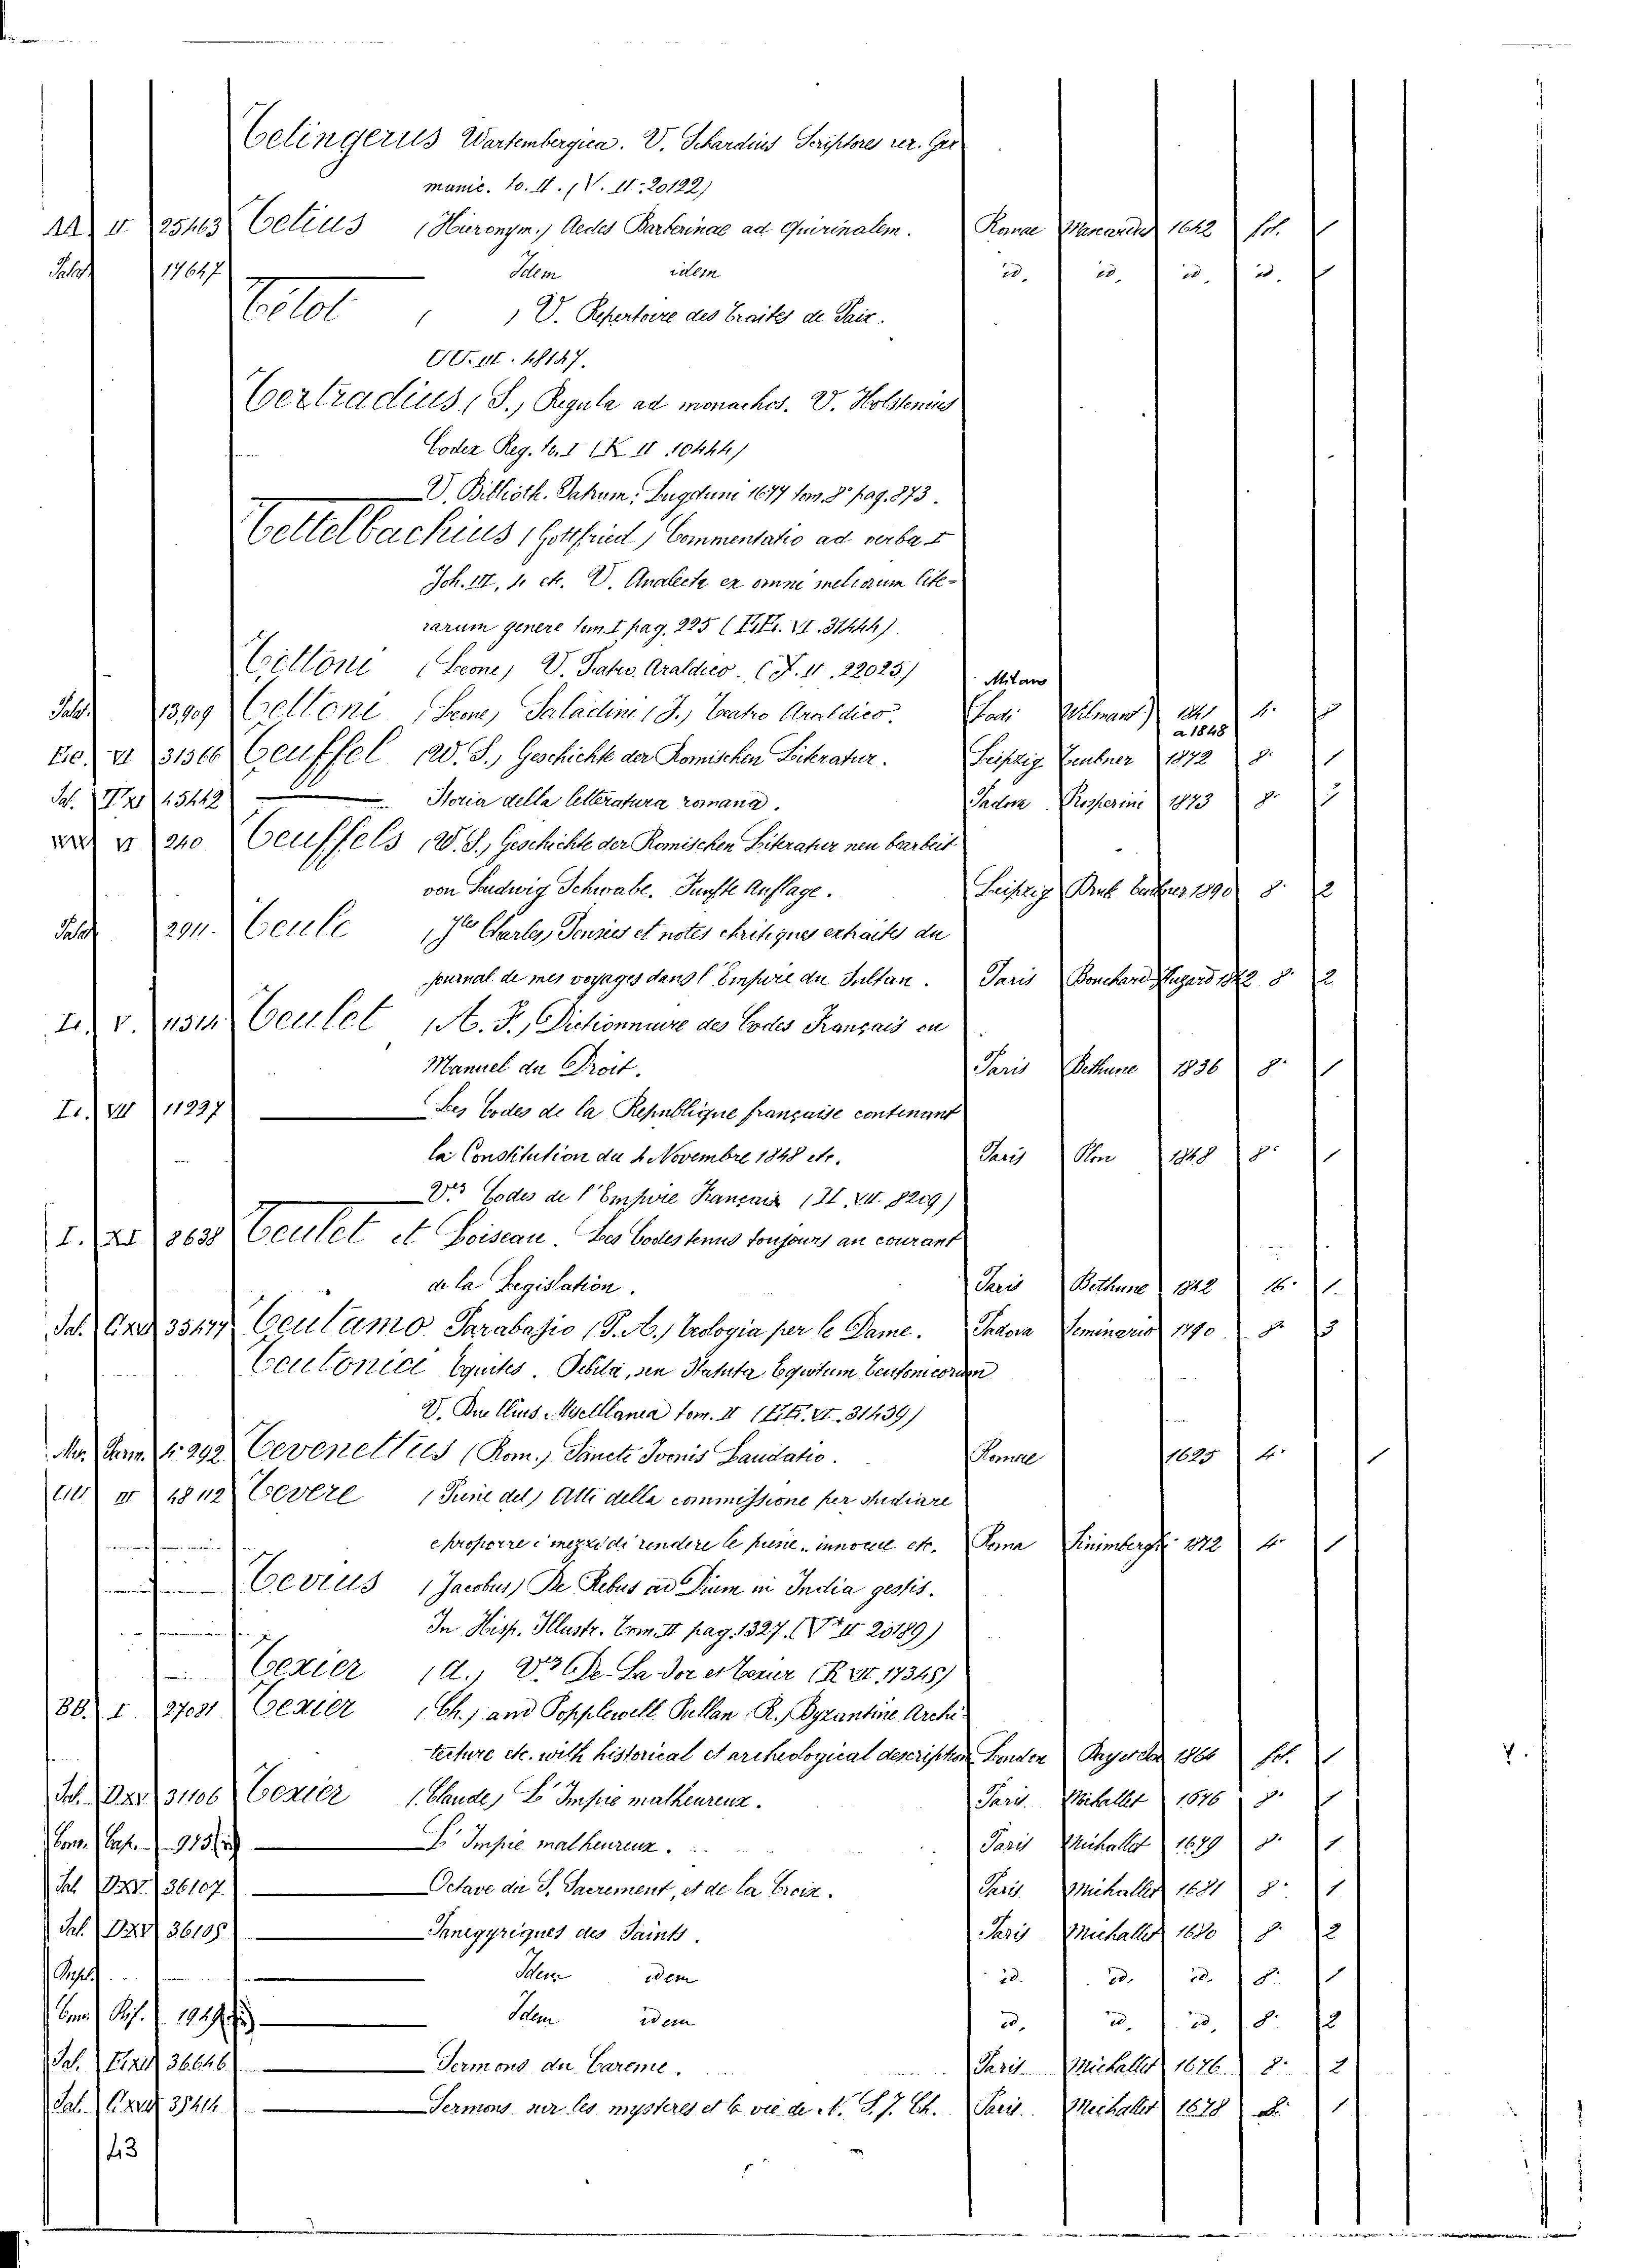 Tetingerus Wartembergica. V. Schardius Scriptores rer. Ger
manic. to. II. (V. II. 20122)
AA II 25463 Tetius (Hieronym.) Aedes Barberinae ad Quirinalem. Romae 1642 fol. 1
Palat. 17647 Idem idem id. id. id. id. 1
Tetot ( ) V. Repertoire des Traités de Paix.
Tetradius (S.) Regula ad monachos. V. Holstenius
Codex Reg. to. I (K II 10444)
V. Biblioth. Patrum, Lugduni 1677 tom. 8º pag. 873.
Tettelbachius (Gottfried) Commentatio ad verba
Joh. III, 4 etc. V. Analecta ex omni meliorum lite-
rarum genere tom. I pag. 225 (VI. 31444)
Tettoni (Leone) V. Teatro Araldico. (F. II. 22023)
Milano
Palat. 13,909 Tettoni (Leone) Saladini (F.) Teatro Araldico. Lodi Wilmant 1841 4. 8
a 1848
VI 31566 Teuffel (W. S.) Geschichte der Romischen Literatur. Leipzig Teubner 1872 8. 1
Sal. 45442 —— Storia della letteratura romana. Padova Prosperini 1873 8.
VI 240 Teuffels (W. S.) Geschichte der Romischen Literatur neu bearbeit
von Ludwig Schwabe. Funfte Auflage. Leipzig Druk Teubner 1890 8. 2
Palat. 2911. Teule (Jles Charles) Pensées et notes chritiques extraites du
journal de mes voyages dans l'Empire du Sultan. Paris Bouchard Huzard 1842 8. 2
V. Teulet (A. F.) Dictionnaire des Codes Français ou
Manuel du Droit. Paris Bethune 1836 8. 1
VII 11297 —— Les Codes de la Republique française contenant
la Constitution du 4 Novembre 1848 etc. Paris Plon 1848 8. 1
V. Codes de l'Empire Français (II. VII. 8209)
I. XI 8638 Teulet et Loiseau. Les Codes tenus toujours au courant
de la Legislation. Paris Bethune 1842 16. 1
Sal. 35477 Teutamo Parabasio (P. A.) Trologia per le Dame. Padova Seminario 1790 8. 3
Teutonici Equites. Debita, seu Statuta Equitum Teutonicorum
V. Duellius Miscellanea tom. II (VI. 31439)
292 Tevenettus (Rom.) Sancti Ivonis Laudatio. Romae 1625 4. 1
III 4842 Tevere (Piene del) Atti della commissione per studiare
e proporre i mezzi di rendere le piene innocue etc. Roma Sinimberghi 1872 4. 1
—— Tevius (Jacobus) De Rebus ad Dium in India gestis.
In Hisp. Illustr. Tom. II pag. 1327. (V. II 20189)
—— Texier (A.) V. De La Tor et Texier (R VII. 17345)
BB. I. 27031 Texier (Ch.) and Popplewell Pullan R.) Byzantine Archi-
tecture etc. with historical et archeological description London 1864 fol. 1
Sal. 31106 Texier (Claude) L'Impie malheureux. Paris Michallet 1676 8. 1
—— L'Impie malheureux. Paris Michallet 1679 8. 1
Sal. 36107 —— Octave du S. Sacrement, et de la Croix. Paris Michallet 1681 8. 1
Sal. 36108 —— Panegyriques des Saints. Paris Michallet 1680 8. 2
—— Idem idem id. id. id. 8. 1
—— Idem idem id. id. id. 8. 2
Sal. 36646 —— Sermons du Careme. Paris Michallet 1676 8. 2
Sal. —— Sermons sur les mysteres et la vie de N. S. J. Ch. Paris Michallet 1678 8. 1
43